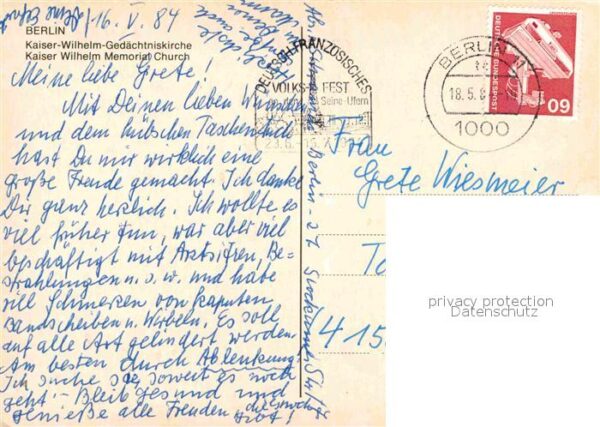 16. V. 84
BERLIN
Kaiser-Wilhelm-Gedächtniskirche
Kaiser Wilhelm Memorial Church
Meine liebe Grete!
Mit Deinen lieben Wünschen
und dem hübschen Taschentuch
hast Du mir wirklich eine
große Freude gemacht. Ich danke
Dir ganz herzlich. Ich wollte es
viel früher tun, war aber viel
beschäftigt mit Arztsitzen, Be-
strahlungen u. s. w. und habe
viel Schmerzen von kaputten
Bandscheiben u. Wirbeln. Es soll
auf alle Art gelindert werden.
Am besten durch Ablenkung!
Ich suche sie, soweit es noch
geht – Bleib gesund und
genieße alle Freuden die es noch
gibt!
DEUTSCH-FRANZÖSISCHES
VOLKSFEST
Seine-Ufern
23.6.
BERLIN 11
18.5.8
1000
DEUTSCHE BUNDESPOST
60
Frau
Grete Wiesmeier
415
Berlin - 27
privacy protection
Datenschutz